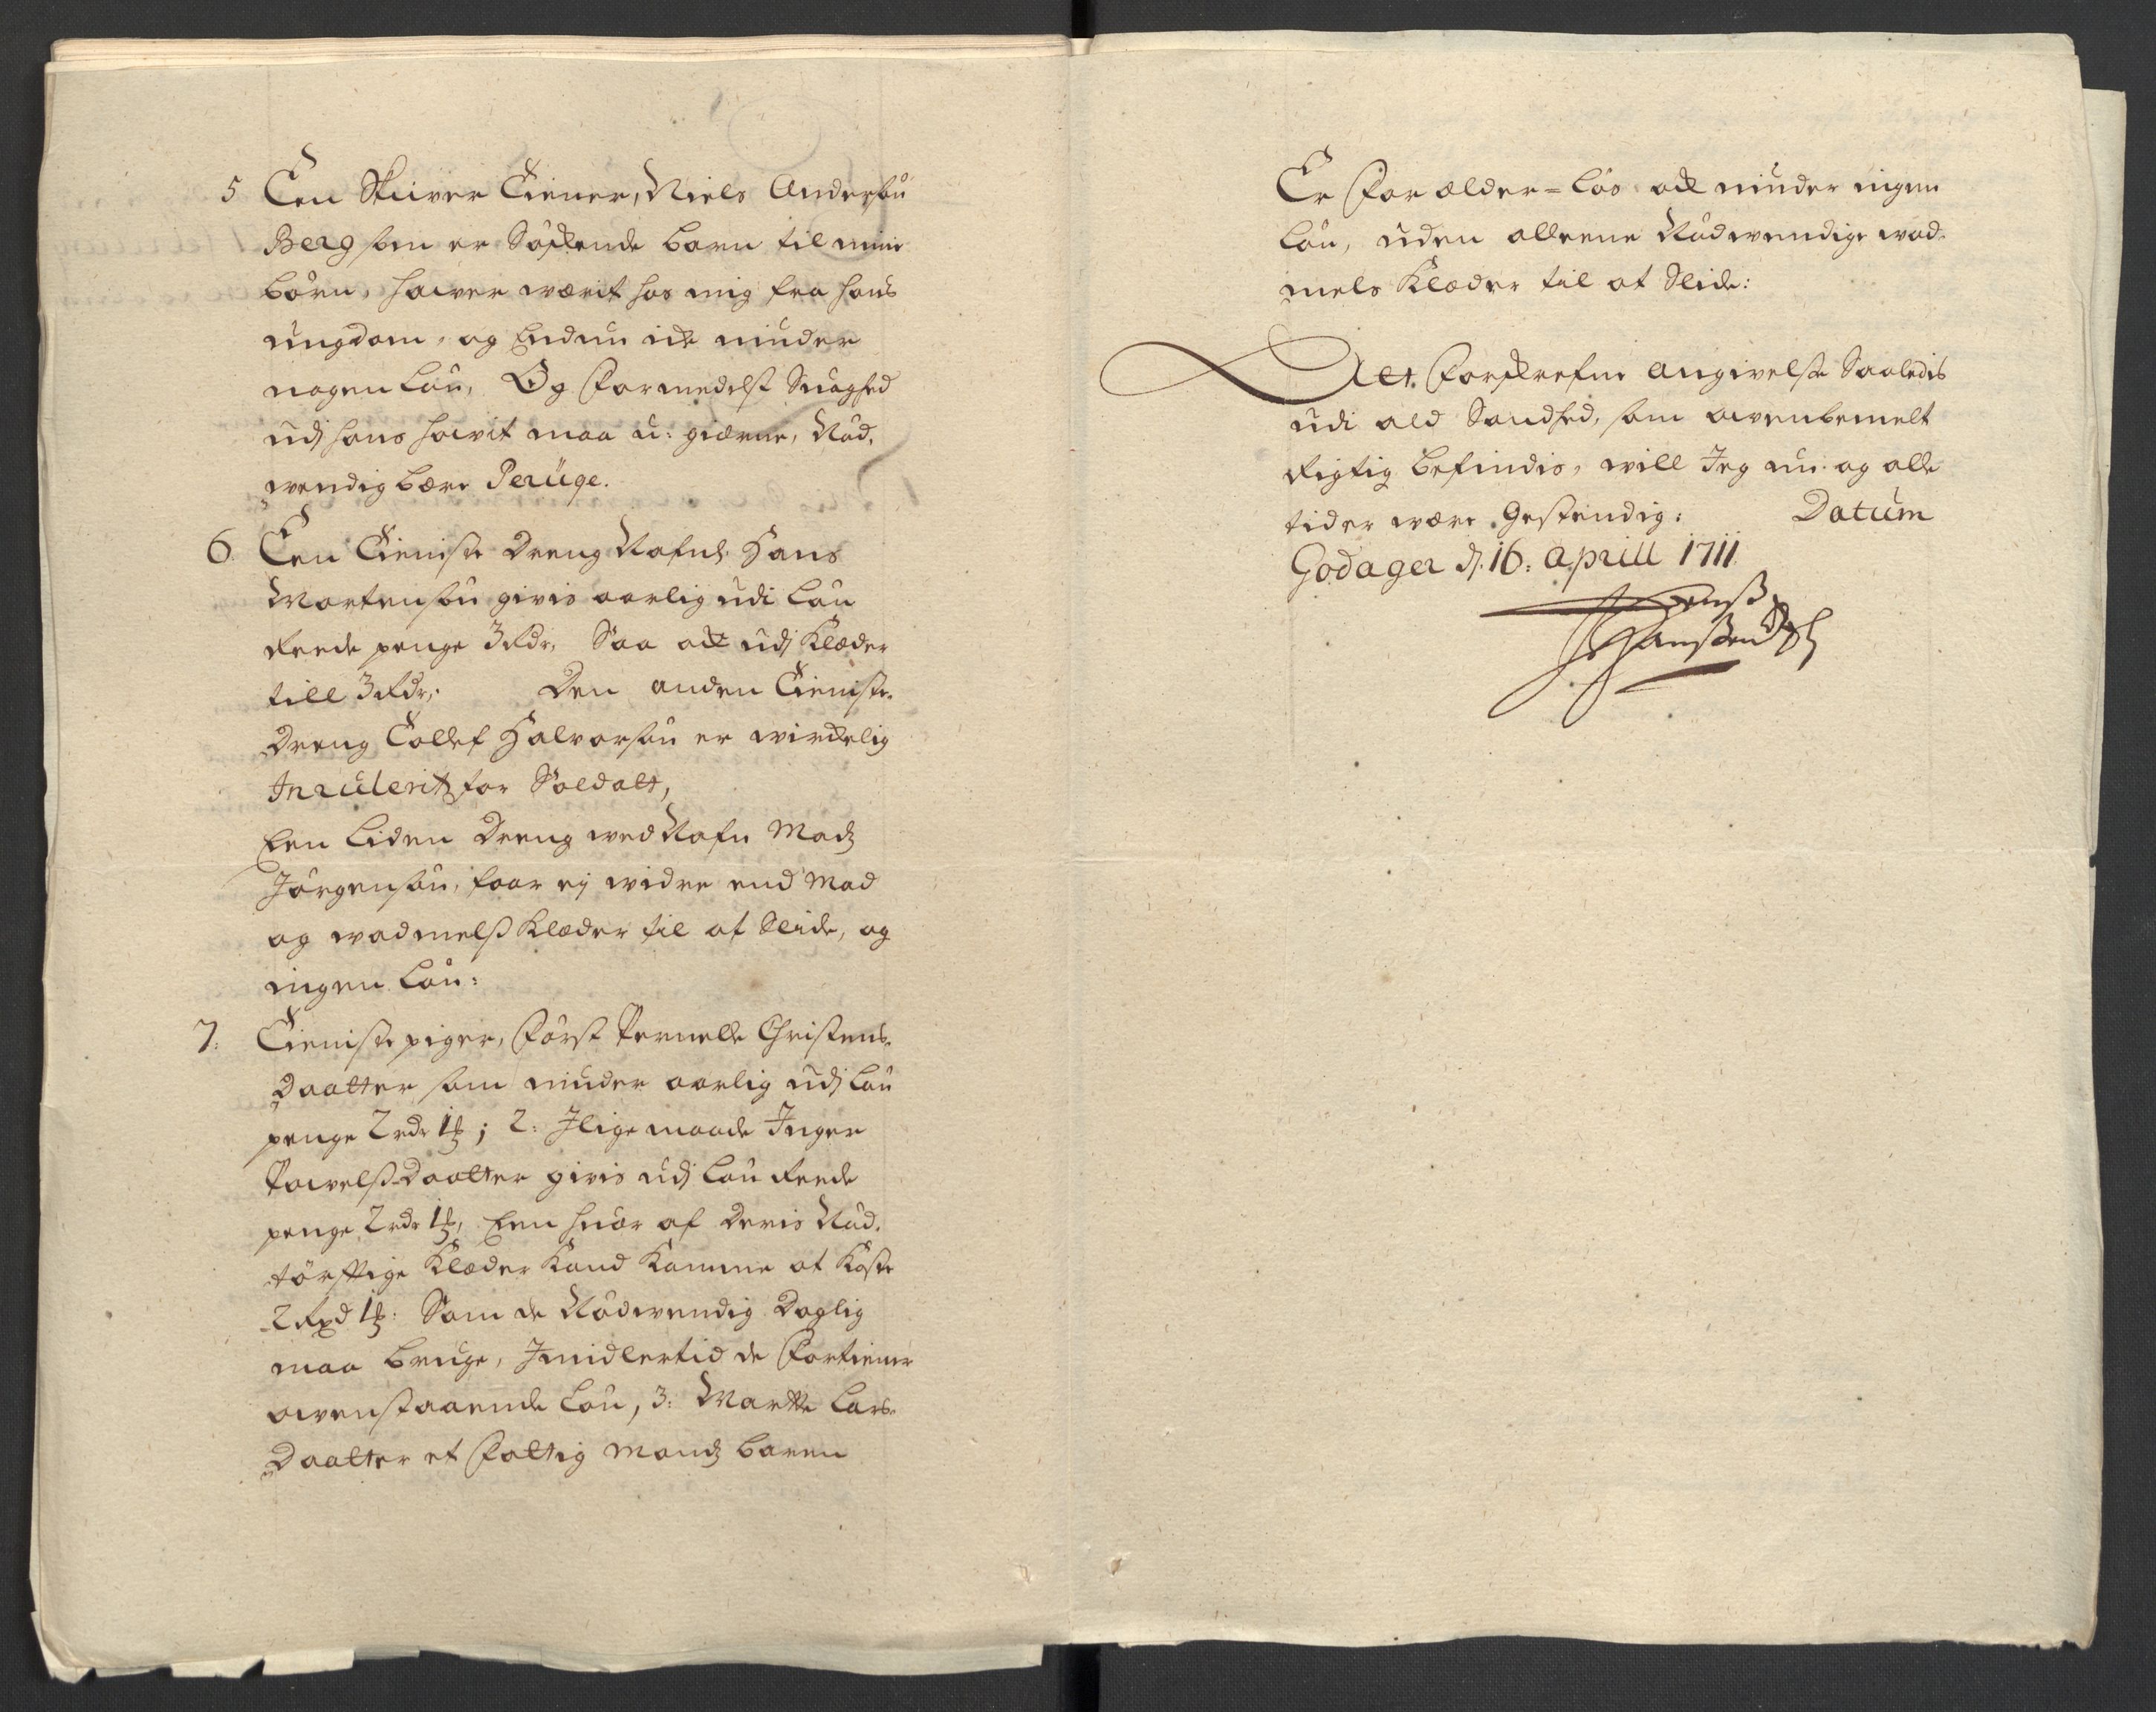 5 Een Skriver Tiener, Niels Andersøn
Berg som er Søskende barn til mine
børn, hawer wærit hos mig fra hans
ungdom, og Endnu ick niuder
nogen Løn, Og Formedelst Suaghed
udj hans howit maa u: giærne, Nød,
wendig bære Peruqe.
6. Een Tieniste Dreng Nafnl. Hans
Mortensøn givis aarlig udi Løn
Reede penge 3 Rdr, Saa och udj Klæder
till 3 Rdr,: Den anden Tieniste-
Dreng Tollef Halvorsøn er wirckelig
Inrulerit for Soldatt,
Een Liden Dreng wed Nafn Madz
Jørgensøn, faar ej widre end Mad
og wadmelss Klæder til at Slide, og
ingen Løn:
7. Tieniste piger, Først Pernelle Christens-
Daatter som niuder aarlig udj Løn
penge 2 rdr 1 ; 2: Jlige maade Inger
Powelss-Daatter givis udj Løn Reede
penge 2 rdr 1 , Een huer af Deris Nød-
tørftige Klæder Kand Komme at Koste
2 Rxd 1 : Som de Nødwendig Daglig
maa bruge, Jmidlertid de Fortiener
owenstaaende Løn, 3: Marthe Lars-
Daatter et Fattig Mandz baren
Er Forælder-løs och niuder ingen
Løn, uden alleene Nødwendige wad-
mels Klæder til at Slide:
Alt. Forskrefne Angivelse Saaledis
udi ald Sandhed, som owenbemelt
Rigtig befindis, will Jeg nu og alle
tider være Gestendig: Datum
Godager d. 16: Aprill 1711
Jenss
Hanssen